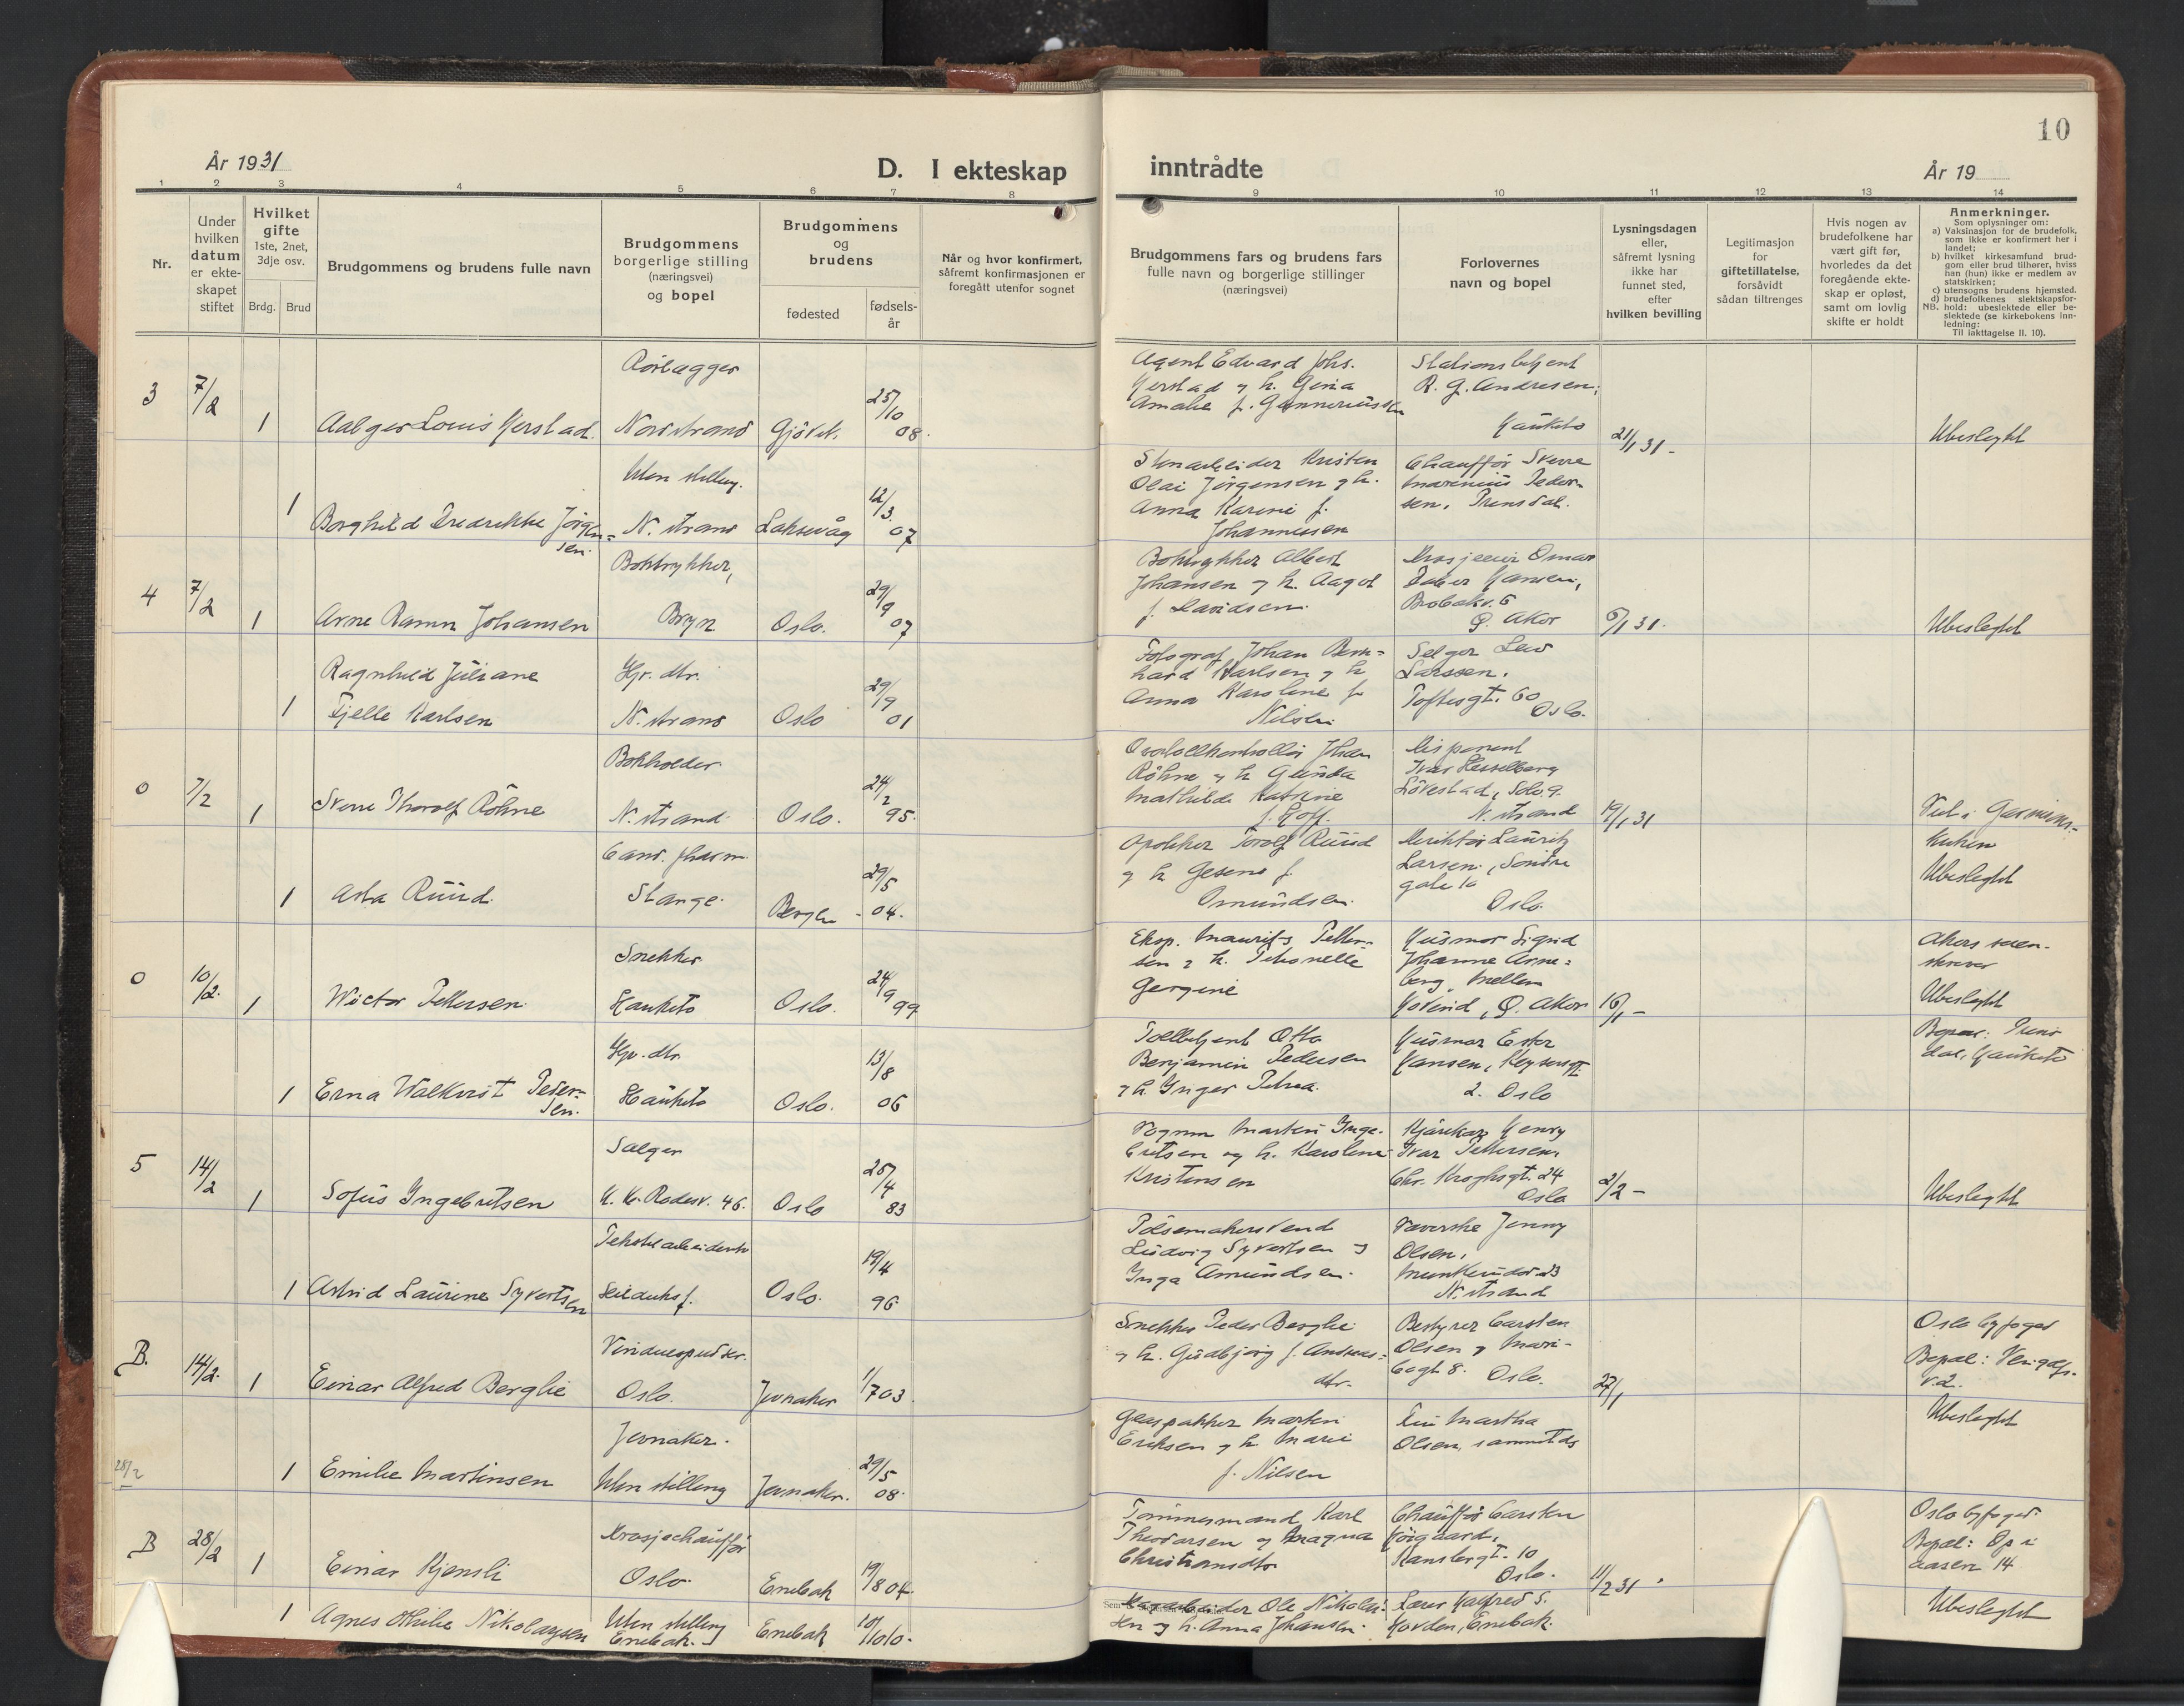 10
År 1931
D. I ekteskap
inntrådte
År 19
1 2 3 4 5 6 7 8 9 10 11 12 13 14
Nr.
Under hvilken datum er ekte- skapet stiftet
Hvilket gifte 1ste, 2net, 3dje osv.
Brdg. Brud
Brudgommens og brudens fulle navn
Brudgommens borgerlige stilling (næringsvei) og bopel
Brudgommens og brudens
fødested
fødsels- år
Når og hvor konfirmert, såfremt konfirmasjonen er foregått utenfor sognet
Brudgommens fars og brudens fars fulle navn og borgerlige stillinger (næringsvei)
Forlovernes navn og bopel
Lysningsdagen eller, såfremt lysning ikke har funnet sted, efter hvilken bevilling
Legitimasjon for giftetillatelse, forsåvidt sådan tiltrenges
Hvis nogen av brudefolkene har vært gift før, hvorledes da det foregående ekte- skap er opløst, samt om lovlig skifte er holdt
Anmerkninger.
Som oplysninger om:
a) Vaksinasjon for de brudefolk, som ikke er konfirmert her i landet;
b) hvilket kirkesamfund brud- gom eller brud tilhører, hviss han (hun) ikke er medlem av statskirken;
c) utensogns brudens hjemsted.
d) brudefolkenes slektskapsfor- hold: ubeslektede eller be- slektede (se kirkebokens inn- ledning:
NB.
Til iakttagelse II. 10).
3 7/2 1
Rørlegger
Nordstrand Gjøvik 25/10 08.
Agent Edvard Johs.
Amalie f. Gunneriussen
Stationsbetjent
R. G. Andresen,
Hauketo
21/1 31-
Ubeslegtet
1 Borghild Fredrikke Jörgen=
sen.
Uten stilling.
N. strand Laksevåg 12/3 07
Stenarbeider Kristen
Olai Jørgensen g h.
Anna Karine f.
Johannessen
Chauffør Sverre
Marinius Peder-
sen, Prinsdal.
4 7/2 1 Arne Ramm Johansen
Boktrykker,
Bryn Oslo. 29/9 07
Boktrykker Albert
Johansen g h. Aagot
f. Davidsen.
Hansen,
Ø. Aker
6/1 31.
Ubeslegtet
1 Ragnhild Juliane
Fjelle Karlsen
Hjv. dtr.
N. strand Oslo 29/9 01
Fotograf Johan Bern=
hard Karlsen g h
Anna Karoline f.
Nilsen
Selger Leif
Larssen,
Toftesgt. 60
Oslo.
0 7/2 1 Sverre Thorolf Röhne
Bokholder
N. strand Oslo. 24/2 95.
Röhne g h Gunda
Mathilde Katrine
f. Hoff.
Disponent
Ivar Hesselberg
Lövestad, Solv. 9.
N. strand
19/1 31
1 Asta Ruud.
Cand. pharm.
Stange. Bergen 29/5 -04.
Apoteker Torolf Ruud
g h Gesine f.
Omundsen.
Direktør Lauritz
Larsen, Søndre
gate 10
Oslo.
Ubeslegtet
0 10/2. 1 Wictor Pettersen.
Snekker
Hauketo Oslo. 24/9 99
Eksp. Maurits Petter-
sen g h. Petronelle
Gergine
Husmor Sigrid
Johanne Arne=
berg, Mellem
Hovind, Ø. Aker
16/1 -
Akers soren-
skriver
Ubeslegtet
1 Erna Walkvist Peder=
sen.
Hjv. dtr.
Hauketo Oslo. 13/8 06
Tollbetjent Otto
Benjamin Pedersen
g h. Inger Petrea.
Husmor Ester
Hansen, Keysersgt
2. Oslo
Bopæl: Prins
dal, Hauketo
5 14/2 1 Sofus Ingebretsen
Sælger
Oslo 25/4 83
Vognm Martin Inge-
bretsen og h. Karoline
Kristensen
Henry
Ivar Pettersen,
Chr. Kroghsgt. 24
Oslo
2/2 -
Ubeslegtet
1 Astrid Laurine Syvertsen
Tekstilarbeiderske
Oslo. 19/4 96.
Pølsemakersvend
Ludvig Syvertsen g
Inga Amundsen.
Væverske Jenny
Olsen,
N. strand
B. 14/2. 1 Einar Alfred Berglie
Vinduespudser.
Oslo. Jevnaker 1/7 03.
Snekker Peder Berglie
g h. Gudbjørg f. Andreas=
dtr.
Bestyrer Carsten
Olsen g Mari-
bogt 8. Oslo.
27/1
Oslo byfoged
v. 2.
28/2
1 Emilie Martinsen
Jevnaker.
Uten stilling Jevnaker. 29/5 08.
Glaspakker Martin
Eriksen g h Marie
f. Nilsen
Fru Martha
Olsen, sammesteds
Ubeslegtet
B 28/2 1 Einar Kjensli
Drosjechauffør
Oslo. Enebak 19/8 04.
Tømmermand Karl
Theodorsen og Magna
Christiansdtr
Chauffør Carsten
Oslo.
11/2 31.
Oslo byfoged.
Bopæl: Op i
aasen 14
1 Agnes Othilie Nikolaysen
Uten stilling
Enebak. Enebak 10/11 010.
Ole Nikolai
sen g h. Anna Johansen.
Lærer Halfred S.
Hovden, Enebak.
Ubeslegtet